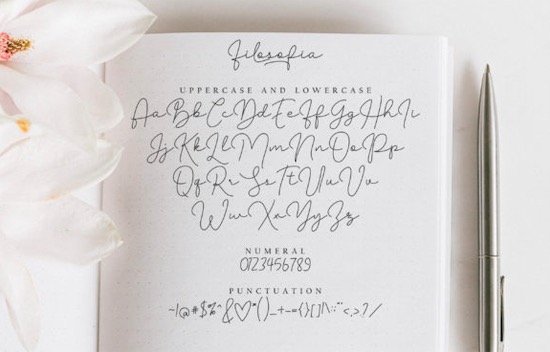 Filosofia
UPPERCASE AND LOWERCASE
AaBbCcDdEeFfGgHhIi
JjKkLlMmNnOoPp
QqRrSsTtUuVv
WwXxYyZz
NUMERAL
0123456789
PUNCTUATION
~!@#$%^&♡*()_+-={}[]|\:;"'<,>.?/